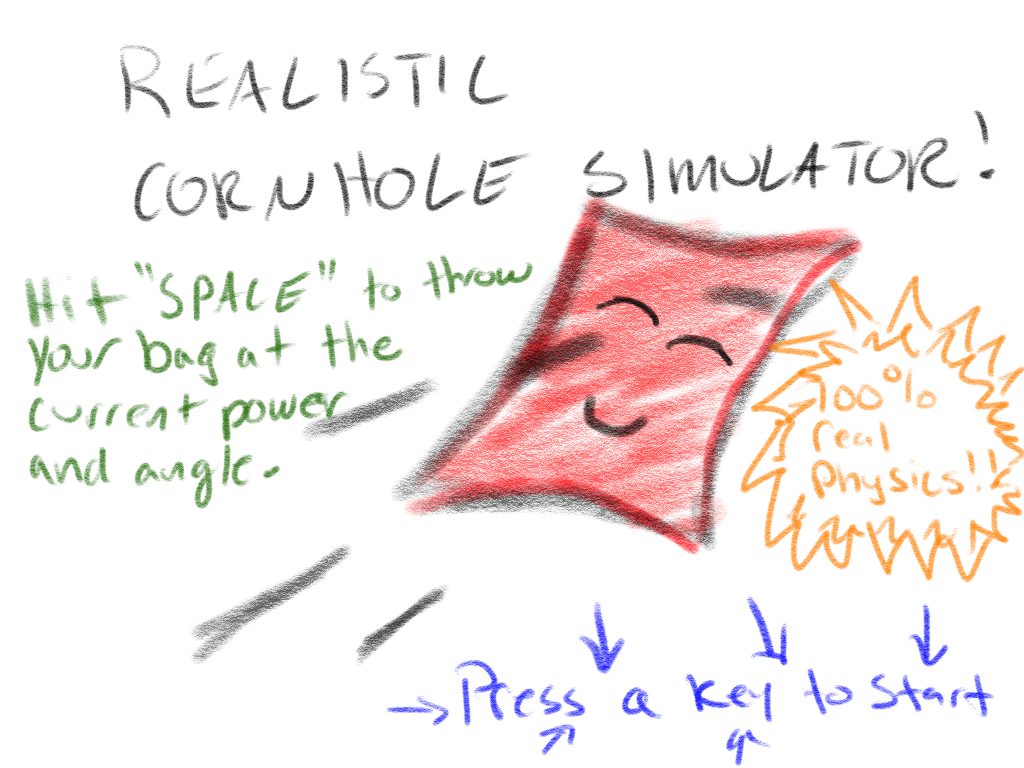 REALISTIC
CORNHOLE SIMULATOR!
Hit "SPACE" to throw
your bag at the
current power
and angle.
100%
real
Physics!!
Press a key to start